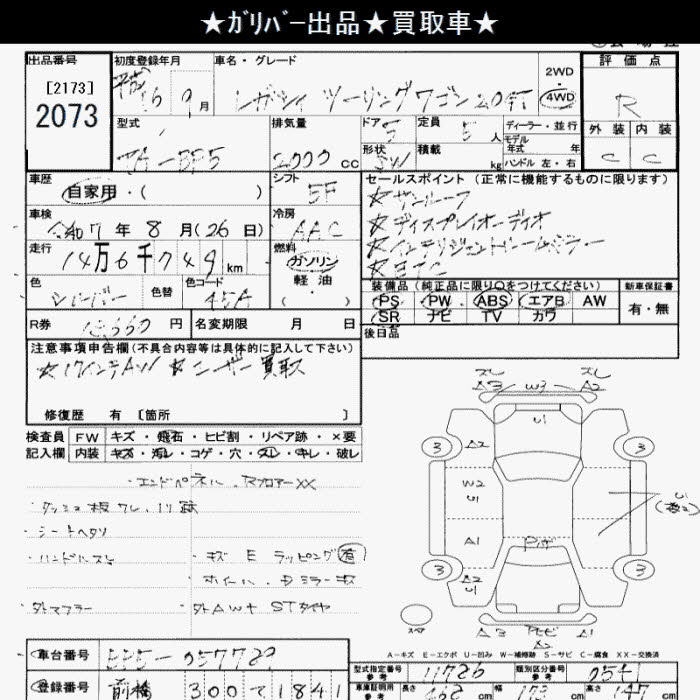 ★ｶﾞﾘﾊﾞｰ出品★買取車★
出品番号
[2173]
2073
初度登録年月
16 9 月
車名・グレード
レガシィ ツーリングワゴン 2.0GT
2WD
4WD
評価点
R
外装 内装
C C
型式
TA-BP5
排気量
2000 cc
ドア 5
形状 SW
定員 5 人
積載 kg
ディーラー・並行
モデル年式 年
ハンドル 左・右
車歴
自家用・( )
シフト
5F
車検
令和7年 8月(26日)
冷房
AAC
走行
14万6千749km
燃料
ガソリン
軽油
・
( )
色
シルバー
色替
色コード
45A
R券
円
名変期限 月 日
セールスポイント (正常に機能するものに限ります)
☆サンルーフ
☆ディスプレイオーディオ
☆インテリジェントルームミラー
☆ETC
装備品(純正品に限り○をつけてください)
新車保証書
PS PW ABS エアB AW
SR ナビ TV カワ
有・無
後日品
注意事項申告欄(不具合内容等は具体的に記入して下さい)
☆17インチAW ☆ユーザー買取
修復歴 有 [箇所 ]
検査員
記入欄
FW キズ・飛石・ヒビ割・リペア跡・×要
内装 キズ・汚レ・コゲ・穴・スレ・キレ・破レ
・エンドパネル、RフロアーXX
・ダッシュ板ワレ・ノリ跡
・シートヘタリ
・ハンドルスレ
・キズ E ラッピング有
・ホイール・ドミラーキズ
・外マフラー
・外AW+STタイヤ
スレ
A3
W3
スレ
A2
U1
3
3
A2
W2
U1
A1
3
3
A2
U1
U1
A3
A2
A-キズ E-エクボ U-凹み W-補修跡 S-サビ C-腐食 XX-交換済
車台番号
BP5-057789
登録番号
前橋 300 て 1841
型式指定番号
参考
11786
類別区分番号
参考
054
車庫証明用
参考
長さ
468 cm
幅
173 cm
高さ
147 cm